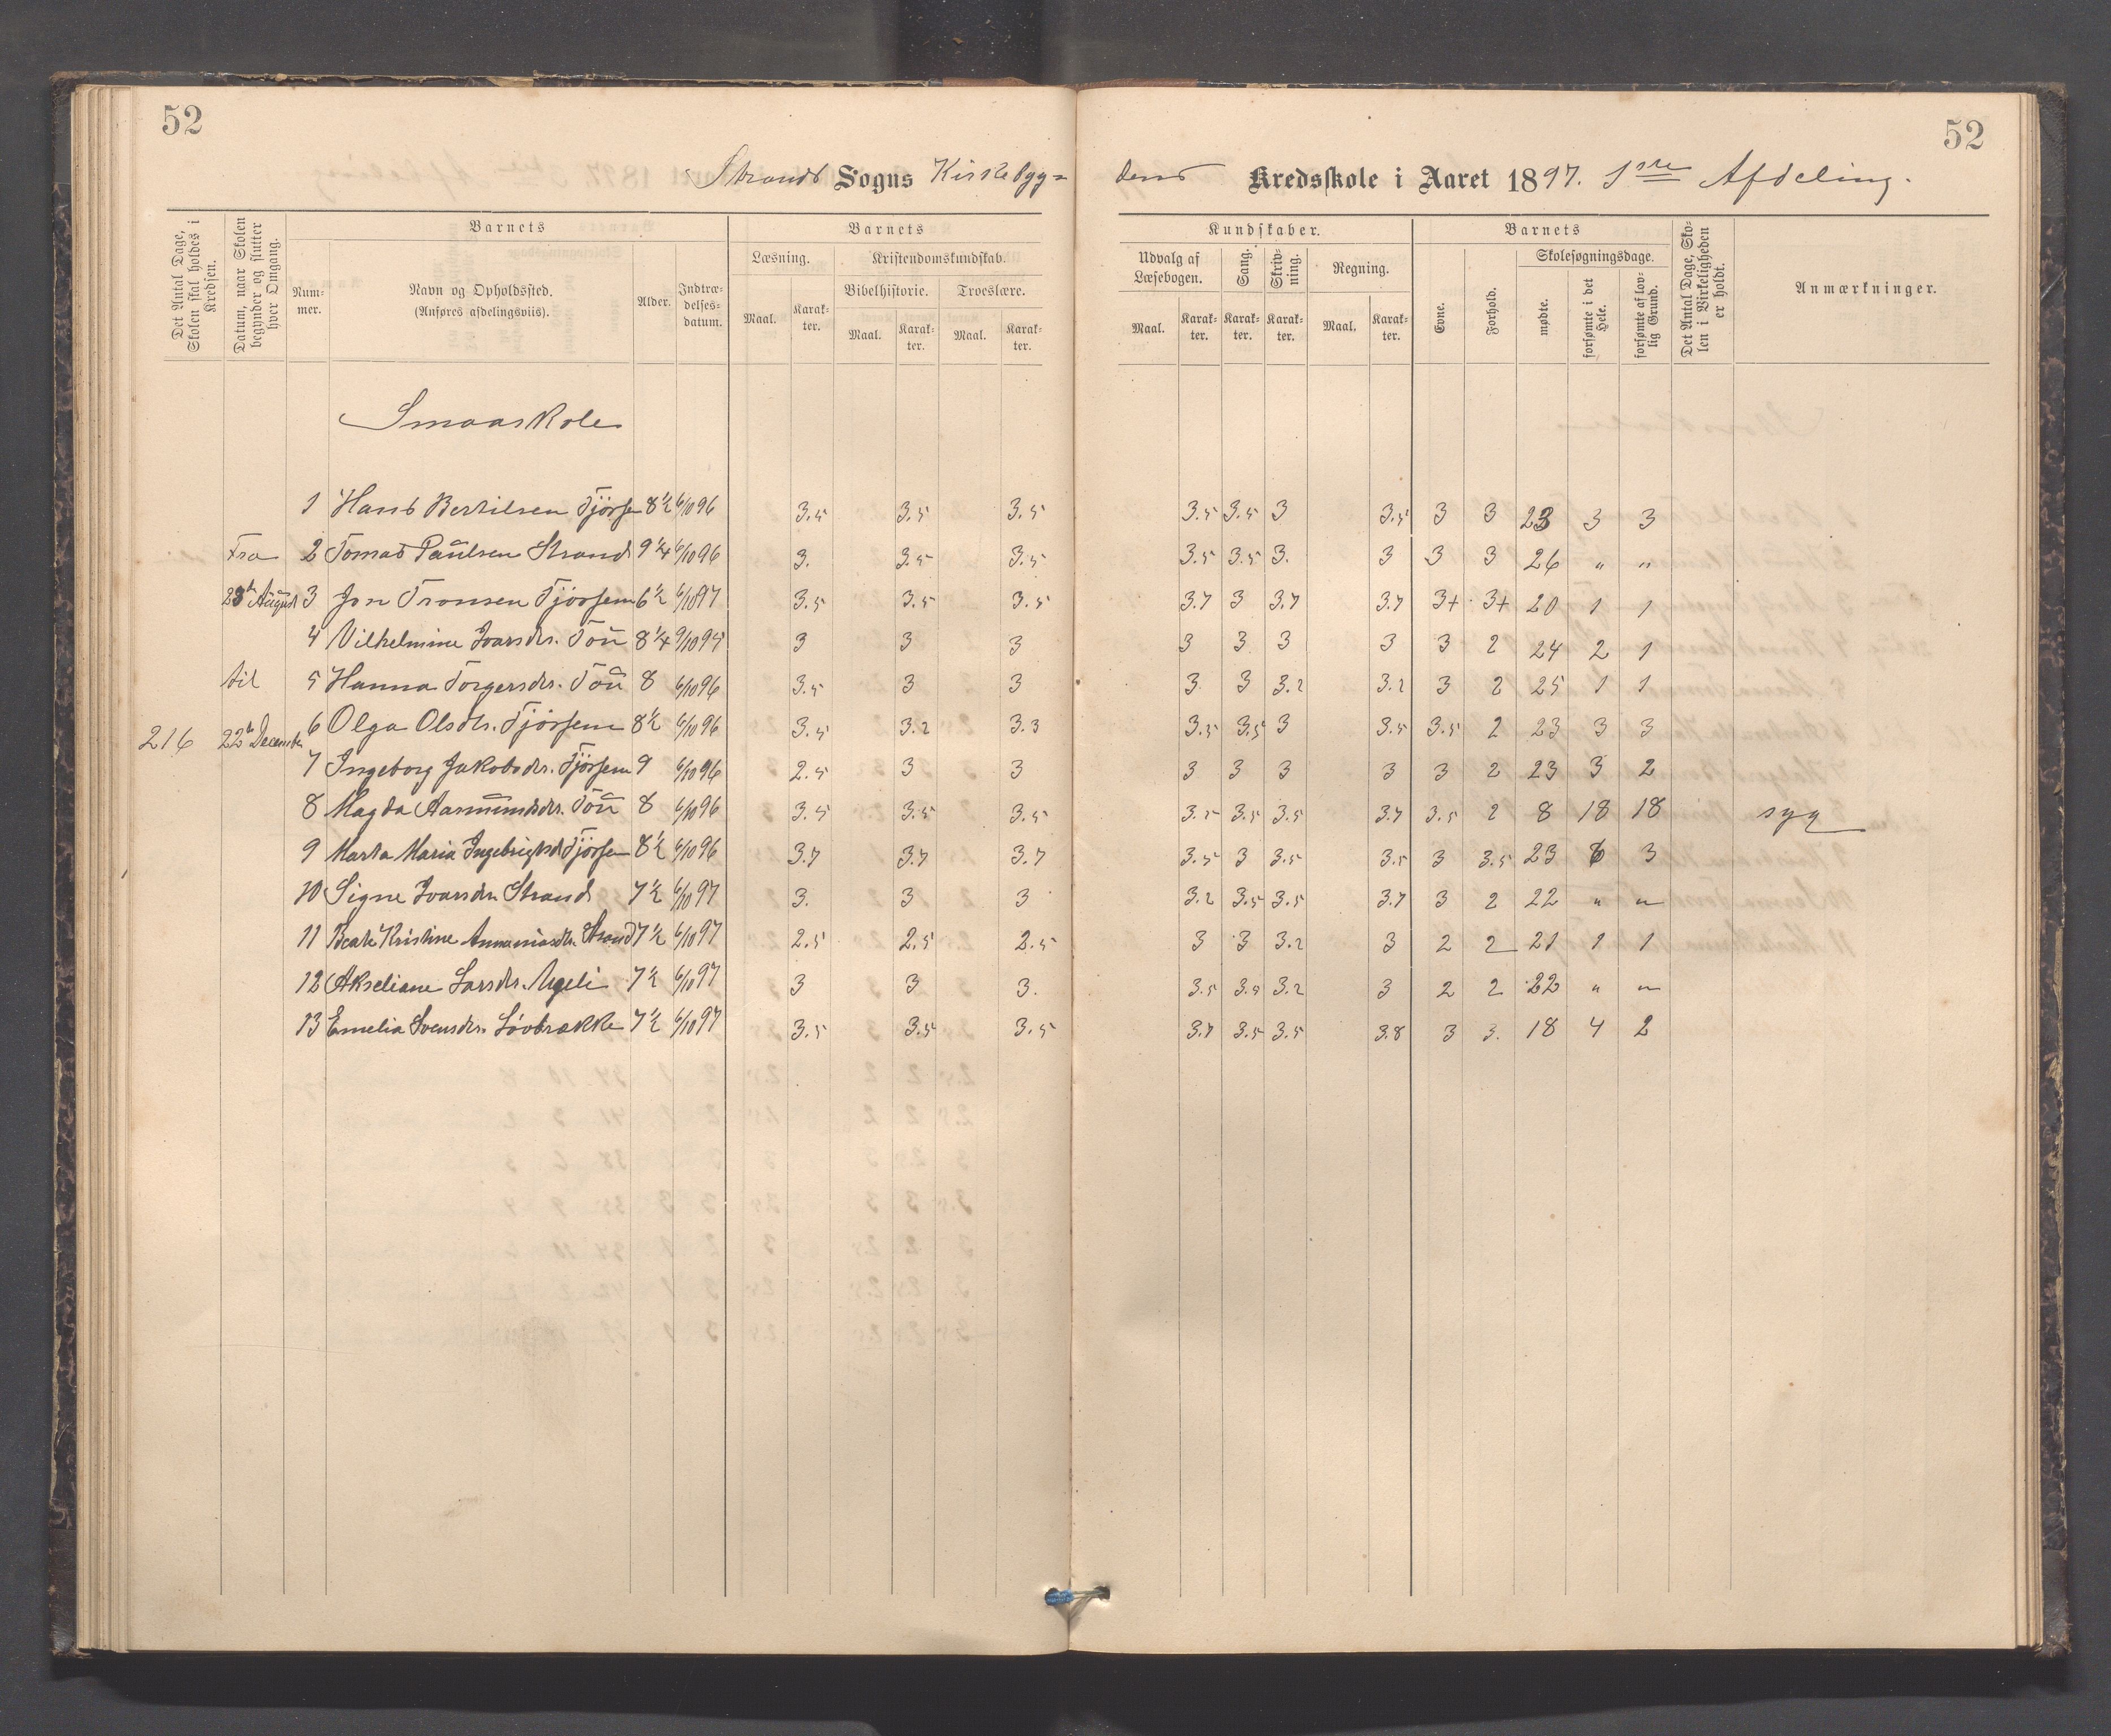 52
52
Strands Sogns Kirkebyg=
dens Kredsskole i Aaret 1897. 1ste Afdeling.
Det Antal Dage, Skolen skal holdes i Kredsen.
Datum, naar Skolen begynder og slutter hver Omgang.
Num-mer.
Barnets
Navn og Opholdssted.
(Anføres afdelingsviis).
Alder.
Indtræ-delses-datum.
Barnets
Læsning.
Maal. Karak-ter.
Kristendomskundskab.
Bibelhistorie. Troeslære.
Maal. Karak-ter. Maal. Karak-ter.
Kundskaber.
Udvalg af Læsebogen. Sang. Skriv-ning. Regning.
Maal. Karak-ter. Karak-ter. Karak-ter. Maal. Karak-ter.
Barnets
Evne. Forhold.
Skolesøgningsdage.
mødte. forsømte i det Hele. forsømte af lov-lig Grund.
Det Antal Dage, Sko-len i Virkeligheden er holdt.
Anmærkninger.
Smaaskole
1 Hans Bertilsen Fjörse 8½ 6/10 96 3.5 3.5 3.5 3.5 3.5 3 3.5 3 3 23 3 3
Fra 2 Tomas Paulsen Strand 9¼ 6/10 96 3. 3.5 3.5 3.5 3.5 3. 3 3 3 26 " "
23de August 3 Jon Tronsen Tjörsem 6½ 6/10 97 3.5 3.5 3.5 3.7 3 3.7 3.7 3+ 3+ 20 1 1
4 Vilhelmine Ivarsdr. Tou 8¼ 9/10 95 3 3 3 3 3 3 3 3 2 24 2 1
til 5 Hanna Torgersdr. Tou 8 6/10 96 3.5 3 3 3 3 3.2 3.2 3 2 25 1 1
216 22de December 6 Olga Olsdtr. Tjörsem 8½ 6/10 96 3.5 3.2 3.3 3.5 3.5 3 3.5 3.5 2 23 3 3
7 Ingeborg Jakobsdr. Tjörsem 9 6/10 96 2.5 3 3 3 3 3 3 3 2 23 3 2
8 Magda Aasmundsdr. Tou 8 6/10 96 3.5 3.5 3.5 3.5 3.5 3.5 3.7 3.5 2 8 18 18 syg
9 Marta Maria Ingebrigtsd Tjörsem 8½ 6/10 96 3.7 3.7 3.7 3.5 3 3.5 3.5 3 3.5 23 6 3
10 Signe Ivarsdr. Strand 7½ 6/10 97 3. 3 3 3.2 3.5 3.5 3.7 3 2 22 " "
11 Beate Kristine Annaniasdr. Strand 7½ 6/10 97 2.5 2.5 2.5 3 3 3.2 3 2 2 21 1 1
12 Akseliane Larsdr. 7½ 6/10 97 3 3 3. 3.5 3.5 3.2 3 2 2 22 " "
13 Emelia Svensdr. Lövbrække 7½ 6/10 97 3.5 3.5 3.5 3.7 3.5 3.5 3.8 3 3. 18 4 2